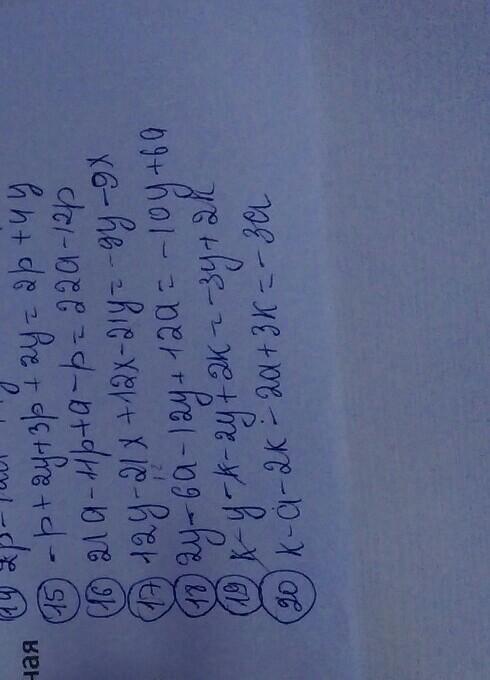 14 2p-
15 -p+2y+3p+2y=2p+4y
16 21a-11p+a-p=22a-12p
17 12y-21x+12x-21y=-9y-9x
18 2y-6a-12y+12a=-10y+6a
19 k-y-k-2y+2k=-3y+2k
20 k-a-2k-2a+3k=-3a
ная